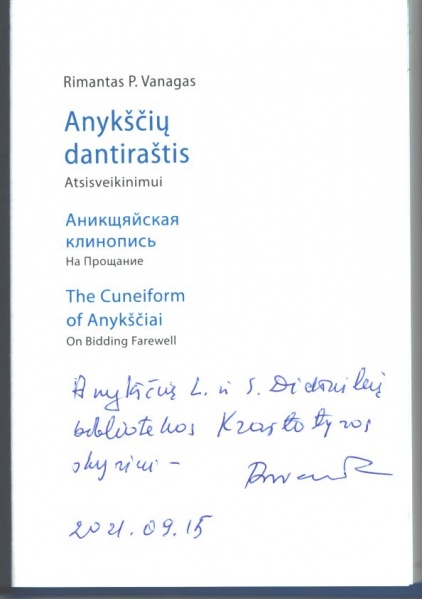 Rimantas P. Vanagas
Anykščių
dantiraštis
Atsisveikinimui
Аникщяйская
клинопись
На Прощание
The Cuneiform
of Anykščiai
On Bidding Farewell
Anykščių L. ir S. Didžiulių
bibliotekos Kraštotyros
skyriui –
2021.09.15